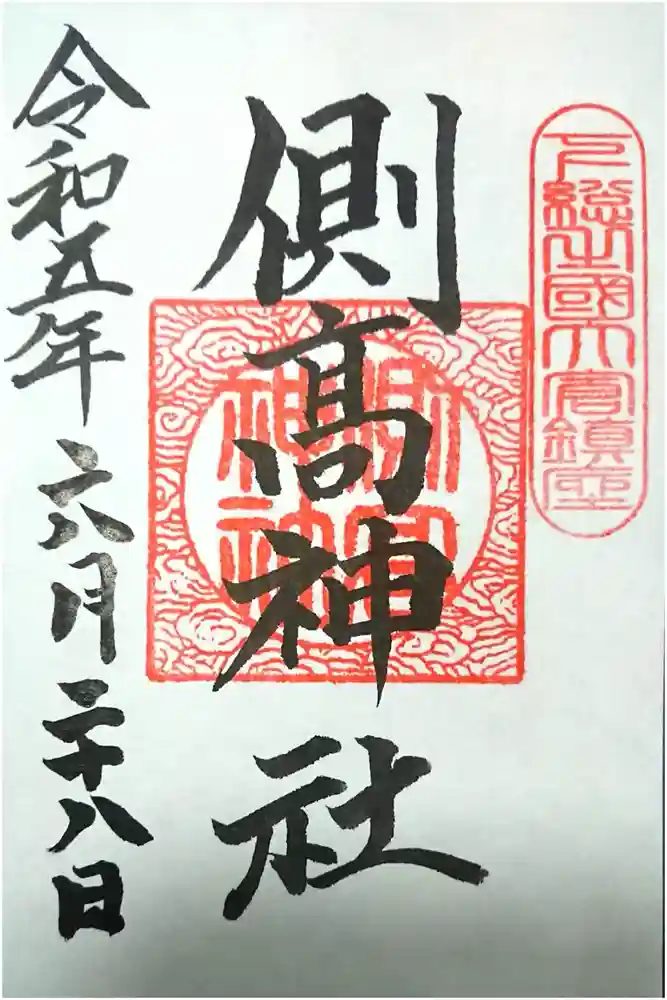 下総之國大宮鎮座
側髙神社
側高神社
令和五年六月二十八日